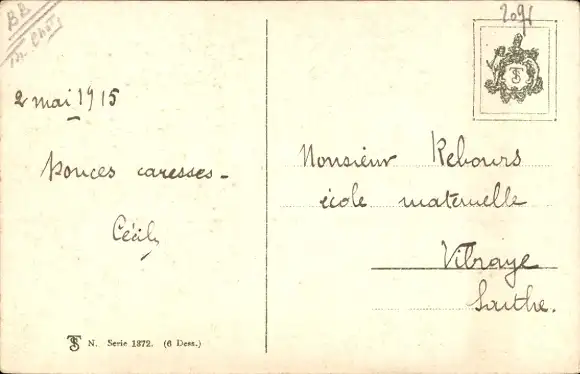 BB
2091
2 mai 1915
Douces caresses -
Cécily
Monsieur Rebours
école maternelle
Vibraye
Sarthe.
TS N. Serie 1872. (6 Dess.)